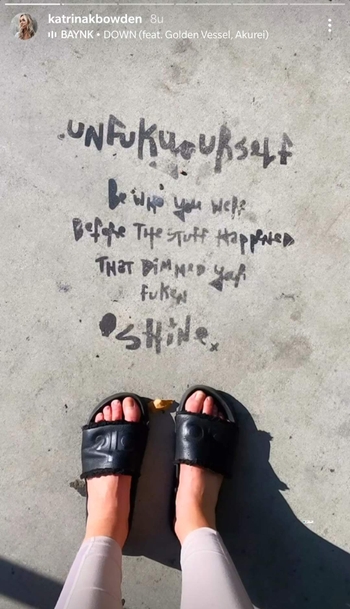 katrinakbowden 8u
BAYNK • DOWN (feat. Golden Vessel, Akurei)
UNFUKUOURSELF
Be WHO YOU WeRe
BefoRe THe STUFF HAPPENED
THAT DIMMED YOUR
FUKEN
SHINE.